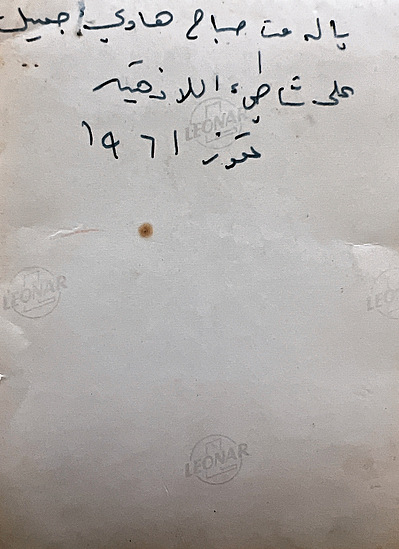 يا له من صباح هادئ جميل
..
على شاطىء اللاذقية
تموز ١٩٦١
LEONAR
LEONAR
LEONAR
LEONAR